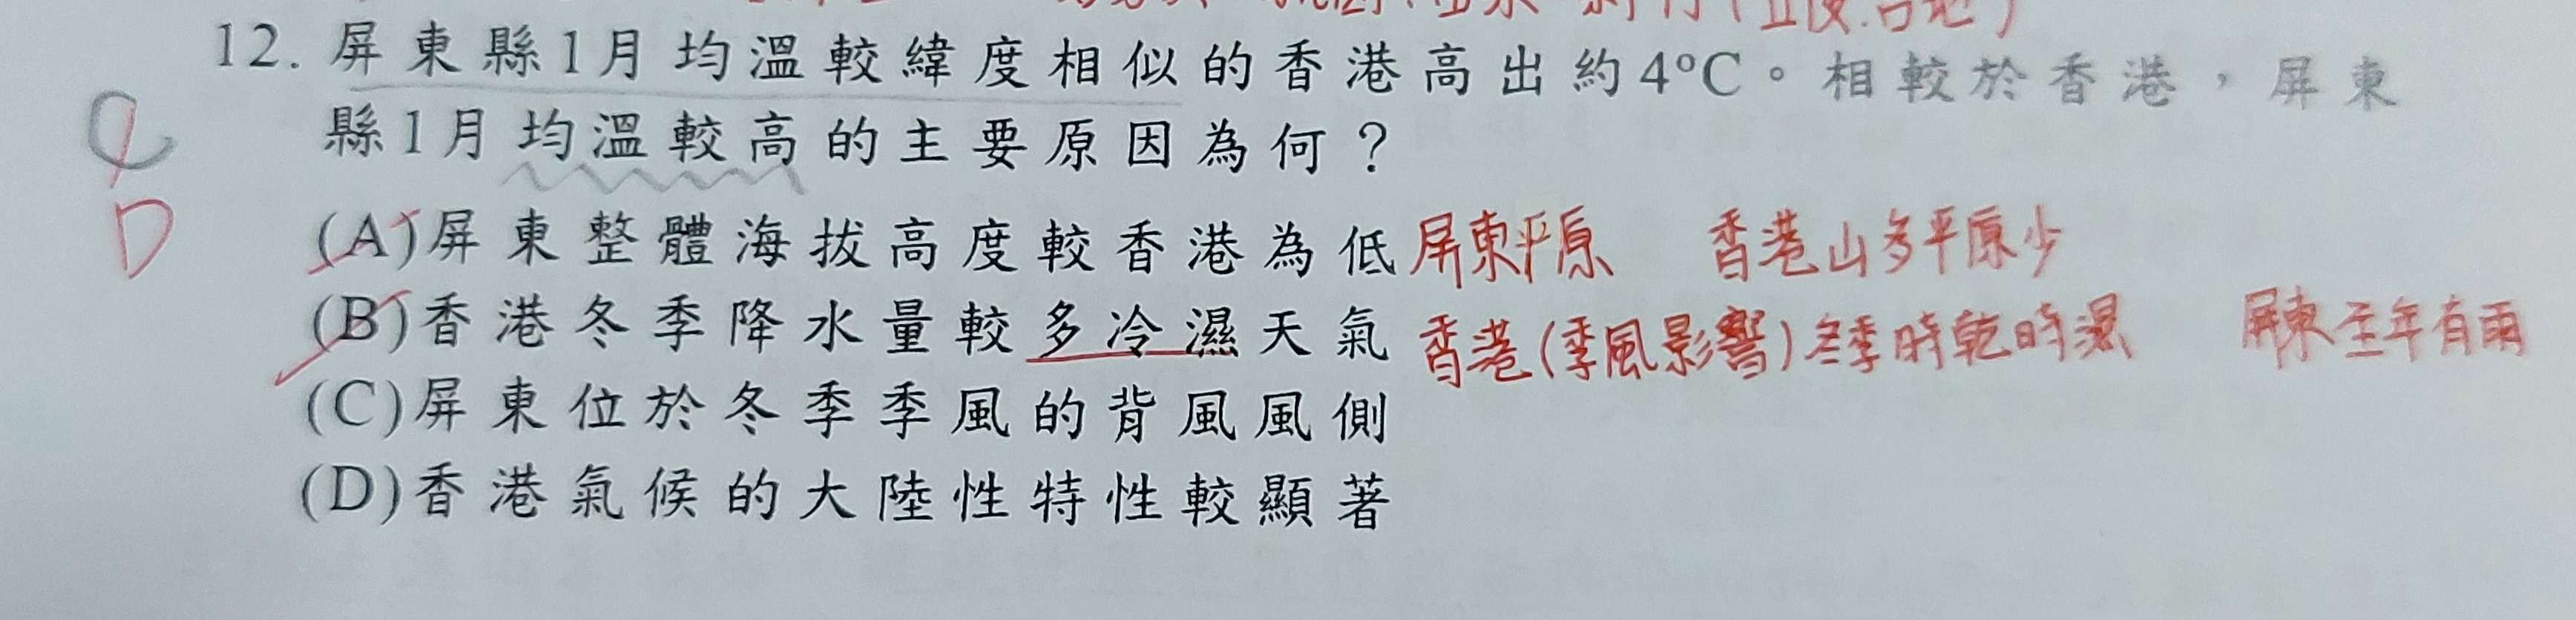 12. 屏東縣1月均溫較緯度相似的香港高出約4°C。相較於香港，屏東
C
縣1月均溫較高的主要原因為何？
D
(A)屏東整體海拔高度較香港為低 屏東平原 香港山多平原少
(B)香港冬季降水量較多冷濕天氣 香港(季風影響)冬季時乾時濕 屏東全年有雨
(C)屏東位於冬季季風的背風風側
(D)香港氣候的大陸性特性較顯著